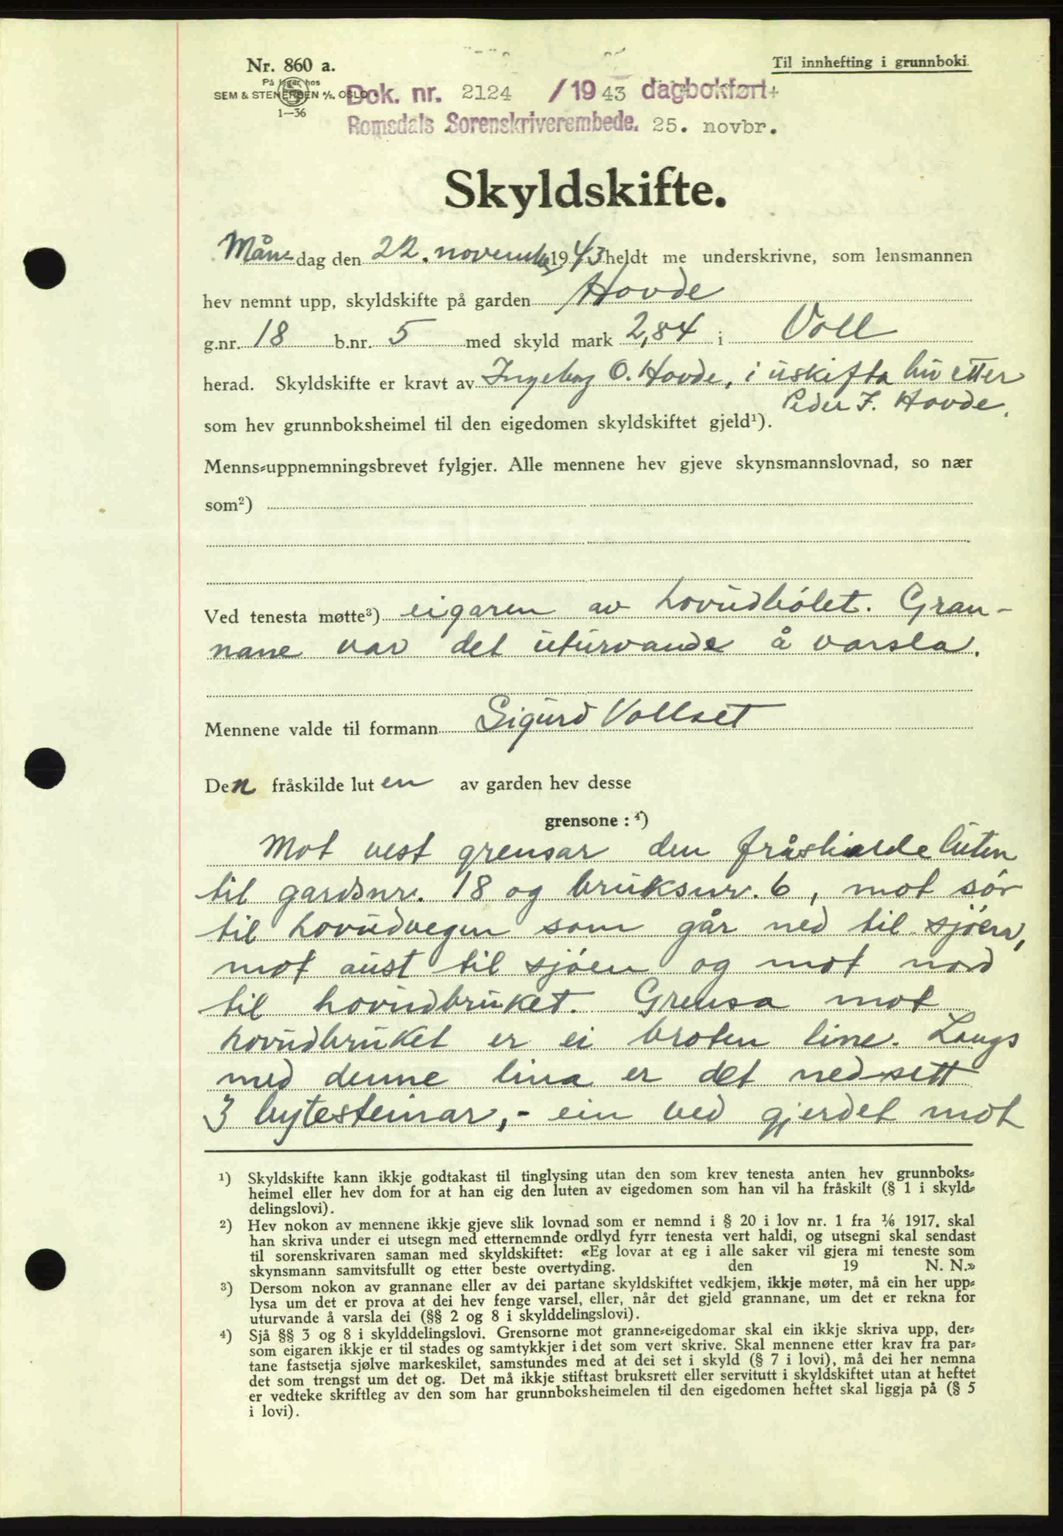 Nr. 860 a.
Til innhefting i grunnboki
På lager hos
SEM & STENERSEN A/S, OSLO
1—36
Dok. nr. 2124 /1943 dagbokført
Romsdals Sorenskriverembede. 25. novbr.
Skyldskifte.
Måndag den 22. november 1943 heldt me underskrivne, som lensmannen
hev nemnt upp, skyldskifte på garden Hovde
g.nr. 18 b.nr. 5 med skyld mark 2,84 i Voll
herad. Skyldskifte er kravt av Ingeborg O. Hovde, i uskifta bu etter
Peder J. Hovde,
som hev grunnboksheimel til den eigedomen skyldskiftet gjeld¹).
Menns-uppnemningsbrevet fylgjer. Alle mennene hev gjeve skynsmannslovnad, so nær
som²)
Ved tenesta møtte³) eigaren av hovudbølet. Gran-
nane var det uturvande å varsla.
Mennene valde til formann Sigurd Vollset
Den fråskilde luten av garden hev desse
grensone : ⁴)
Mot vest grensar den fråskilde luten
til gardsnr. 18 og bruksnr. 6, mot sør
til hovudvegen som går ned til sjøen,
mot aust til sjøen og mot nord
til hovudbruket. Grensa mot
hovudbruket er ei broten line. Langs
med denne lina er det nedsett
3 bytesteinar, - ein ved gjerdet mot
¹) Skyldskifte kann ikkje godtakast til tinglysing utan den som krev tenesta anten hev grunnboks-
heimel eller hev dom for at han eig den luten av eigedomen som han vil ha fråskilt (§ 1 i skyld-
delingslovi).
²) Hev nokon av mennene ikkje gjeve slik lovnad som er nemnd i § 20 i lov nr. 1 fra 1/6 1917, skal
han skriva under ei utsegn med etternemnde ordlyd fyrr tenesta vert haldi, og utsegni skal sendast
til sorenskrivaren saman med skyldskiftet: «Eg lovar at eg i alle saker vil gjera mi teneste som
skynsmann samvitsfullt og etter beste overtyding. den 19 N. N.»
³) Dersom nokon av grannane eller av dei partane skyldskiftet vedkjem, ikkje møter, må ein her upp-
lysa um det er prova at dei hev fenge varsel, eller, når det gjeld grannane, um det er rekna for
uturvande å varsla dei (§§ 2 og 8 i skylddelingslovi).
⁴) Sjå §§ 3 og 8 i skylddelingslovi. Grensorne mot granne-eigedomar skal ein ikkje skriva upp, der-
som eigaren ikkje er til stades og samtykkjer i det som vert skrive. Skal mennene etter krav fra par-
tane fastsetja sjølve markeskilet, samstundes med at dei set i skyld (§ 7 i lovi), må dei her nemna
det som trengst um det og. Det må ikkje stiftast bruksrett eller servitutt i skyldskiftet utan at heftet
er vedteke skriftleg av den som har grunnboksheimelen til den eigedomen heftet skal liggja på (§ 5
i lovi).